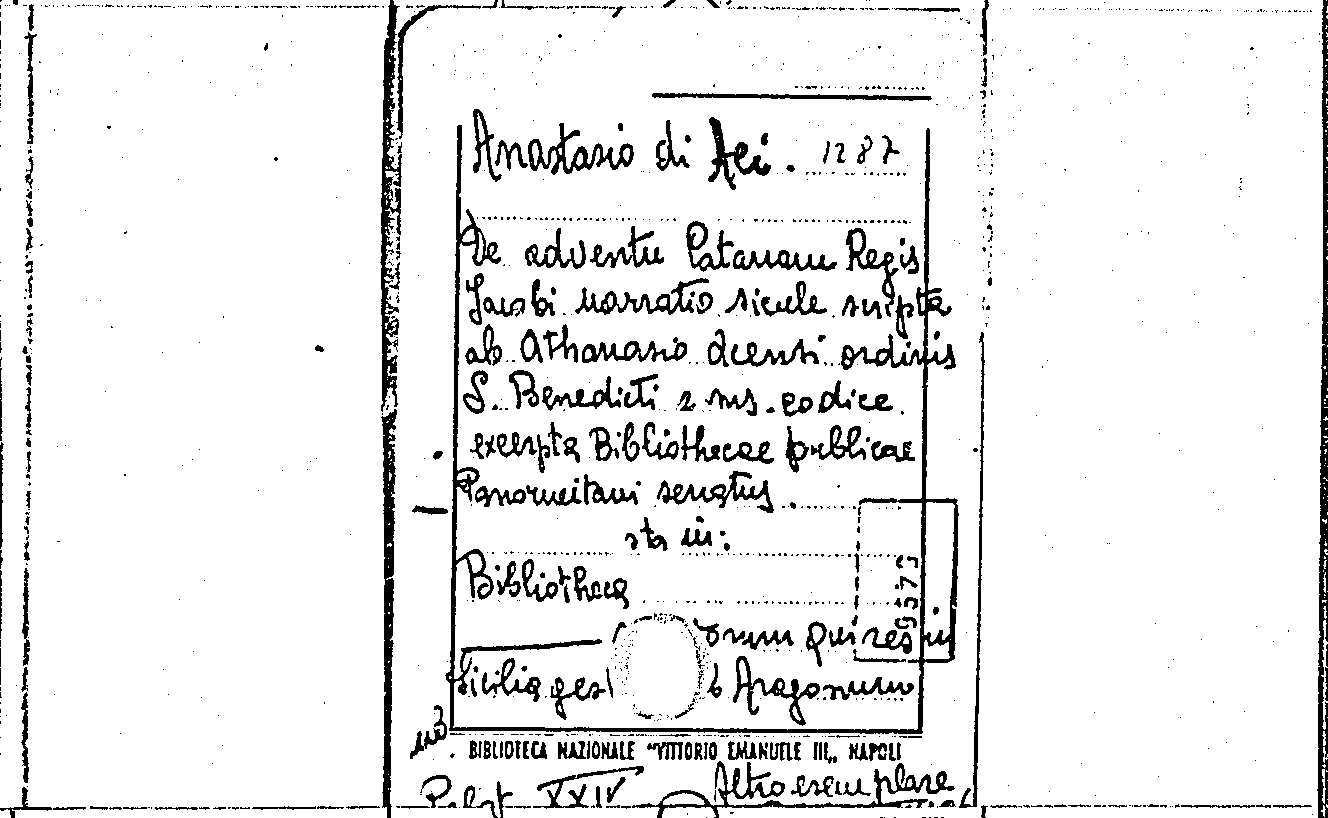 Anastasio di Aci. 1287
De adventu Catanam Regis
Jacobi narratio sicule scripta
ab Athanasio Acensi ordinis
S. Benedicti e ms. codice
excerpta Bibliothecae publicae
Panormitani senatus.
sta in:
Bibliotheca
orum qui res in
Sicilia gest b Aragonum
BIBLIOTECA NAZIONALE "VITTORIO EMANUELE III„ NAPOLI
Palat XXIV Altro esemplare